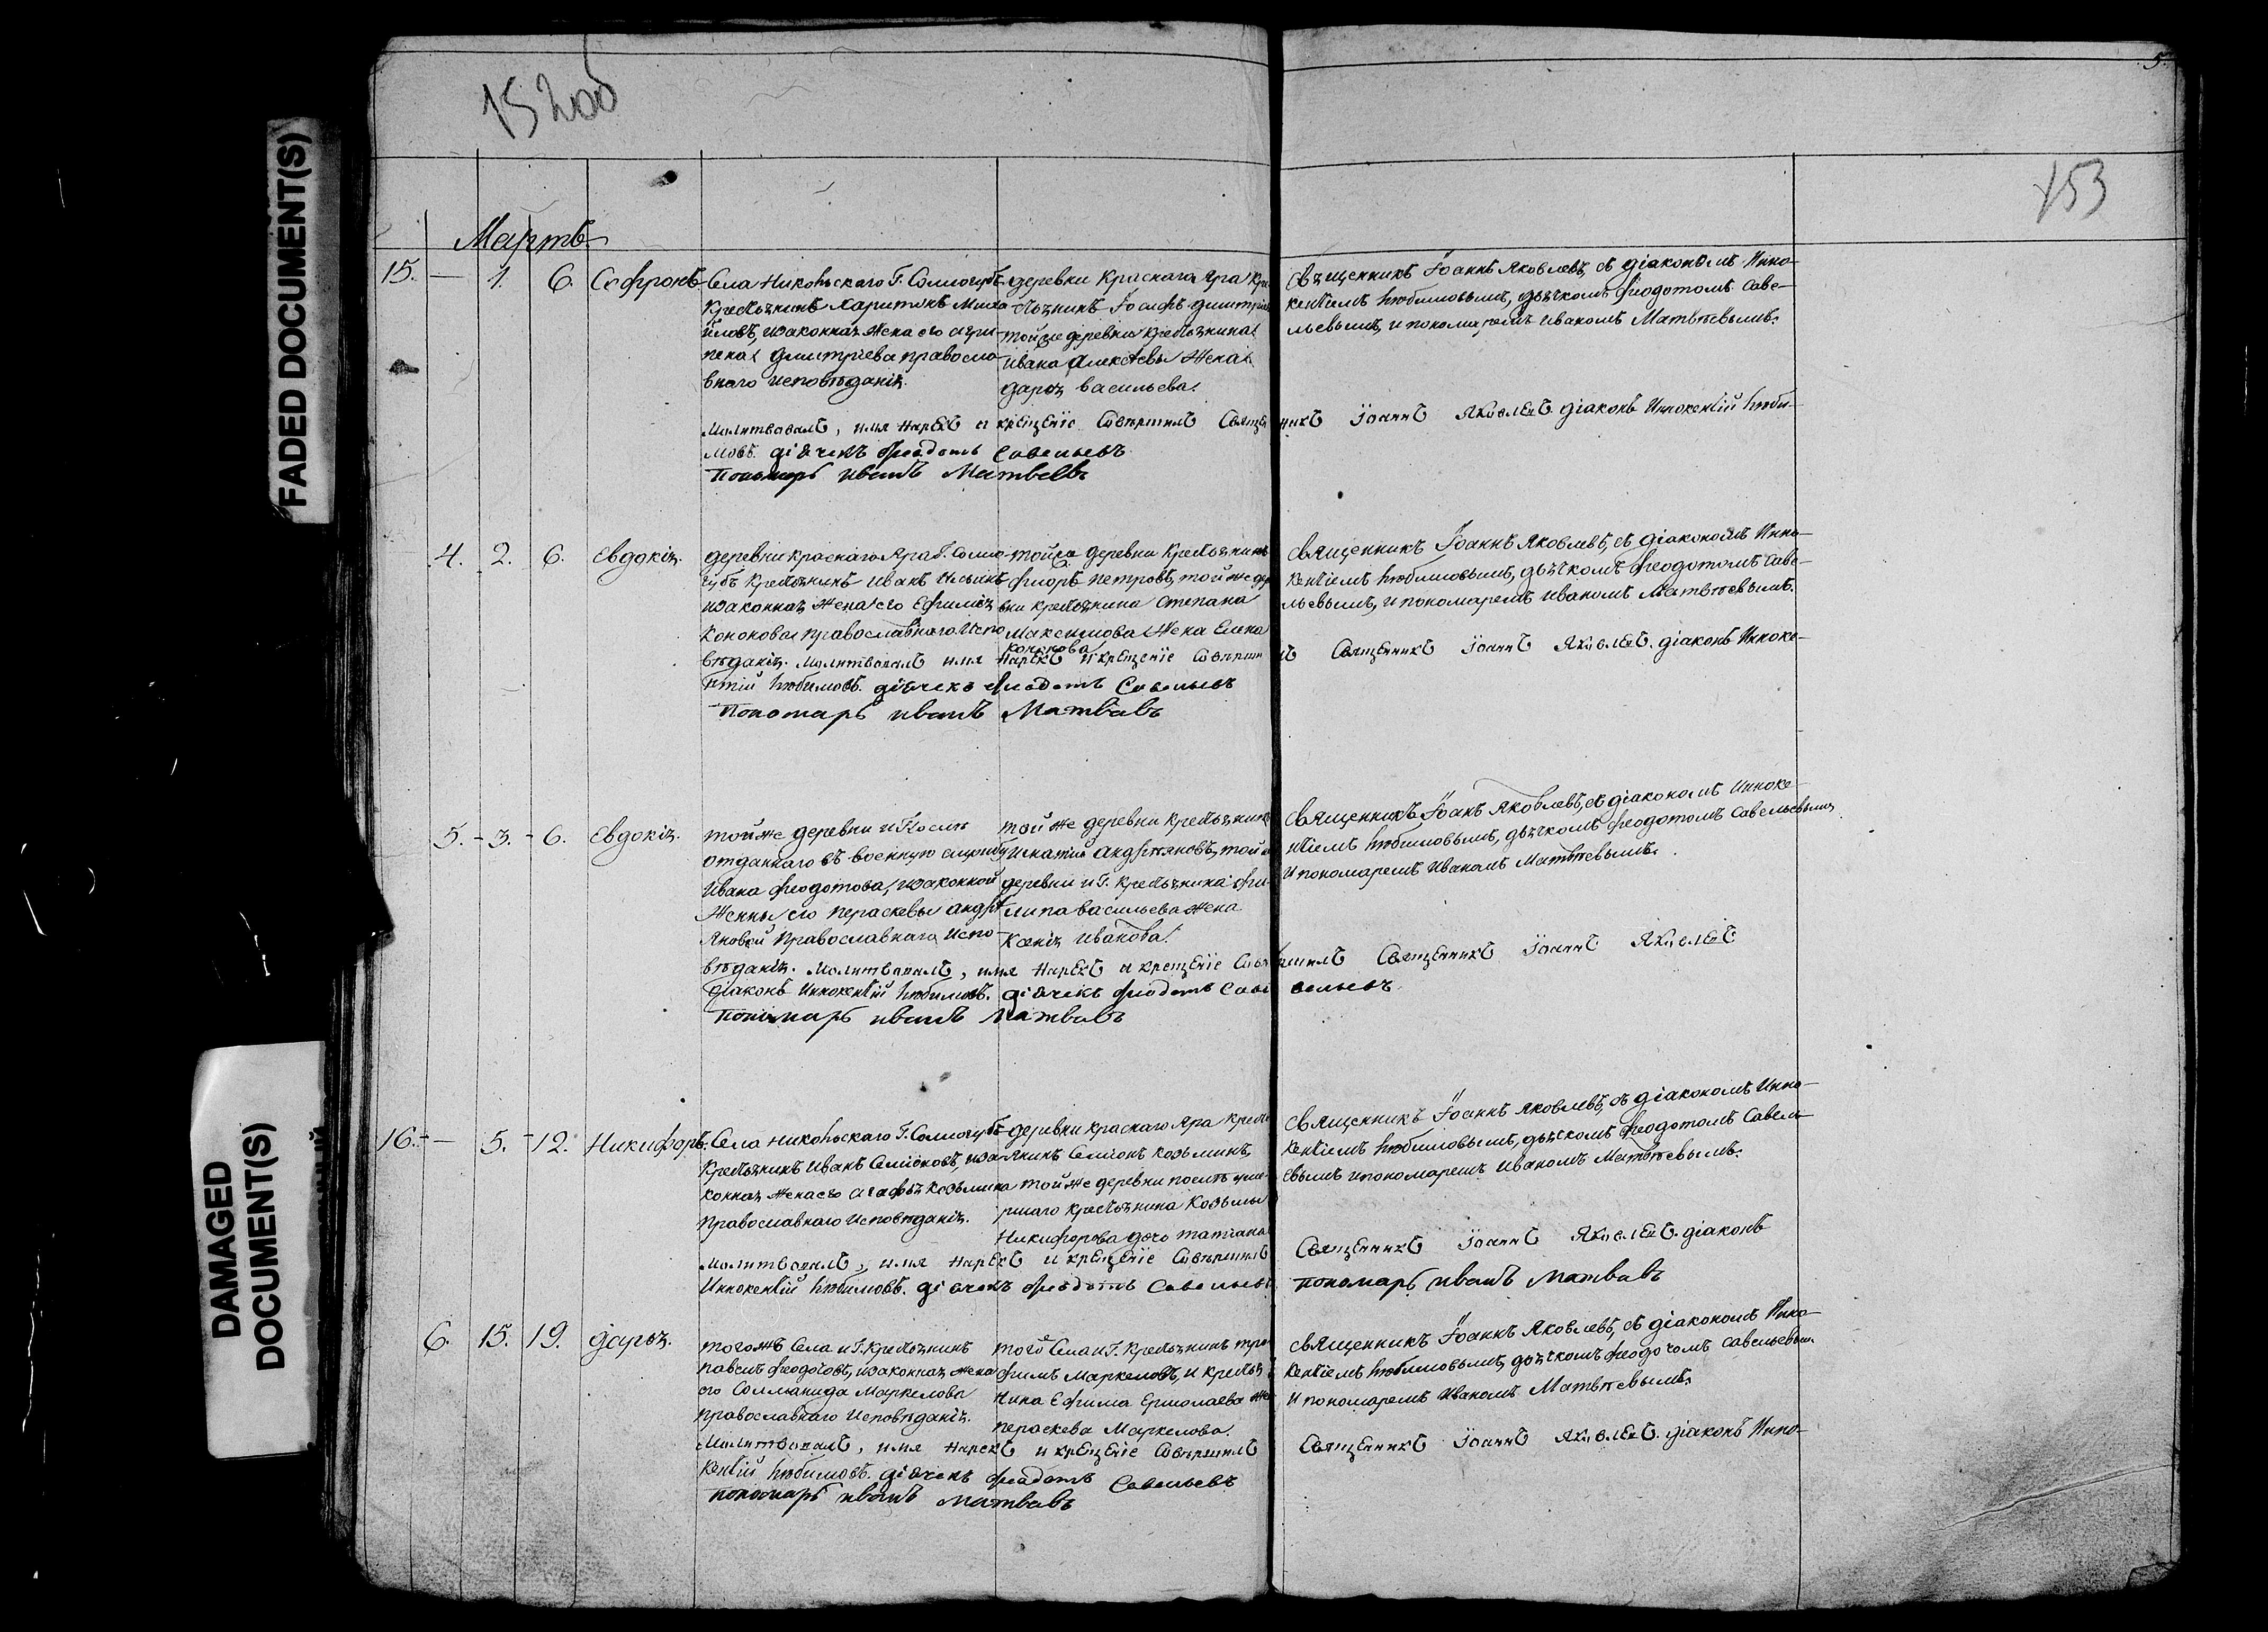 FADED DOCUMENT(S)
DAMAGED DOCUMENT(S)
152об
5.
153
Мартъ
15. — 1. 6. Софронъ
Села Никольскаго Г. Сологубъ
Крестьянинъ Харитонъ Миха-
йловъ, изаконная жена его Агри-
пена Димитріева православ-
внаго исповѣданія.
деревни Краснаго Яра Кре
стьянинъ Іосифъ Димитріев
тойже деревни крестьянина
Ивана Алексѣева Жена
Дарья Васильева.
Священникъ Іоаннъ Яковлевъ, съ діакономъ Инно-
кентіемъ Любимовымъ, дьячкомъ Феодотомъ Саве-
льевымъ, и пономаремъ Иваномъ Матвѣевымъ.
Молитвовалъ, имя нарекъ и крещеніе Совершилъ Священникъ Іоаннъ Яковлевъ. діаконъ Иннокентій Люби-
мовъ. діячекъ Феодотъ Савельевъ
Пономарь Иванъ Матвевъ
4. 2. 6. Евдокія.
деревни Краснаго Яра Г. Соло-
губъ Крестьянинъ Иванъ Ильинъ
изаконная жена его Ефимія
Кононова православнаго Испо
вѣданія.
тойже деревни Крестьянинъ
Фіоръ Петровъ, той же дер
вни крестьянина Степана
Максимова Жена Елена
Кононова
Священникъ Іоаннъ Яковлевъ, съ діакономъ Инно-
кентіемъ Любимовымъ, дьячкомъ Феодотомъ Саве-
льевымъ, и пономаремъ Иваномъ Матвѣевымъ.
Молитвовалъ имя нарекъ и крещеніе Совершилъ Священникъ Іоаннъ Яковлевъ. діаконъ Инноке-
нтій Любимовъ. діячекъ Феодотъ Савельевъ
Пономарь Иванъ Матвевъ
5. - 3. - 6. Евдокія.
тойже деревни и Г. Послѣ
отданнаго въ военную службу
Ивана Феодотова, изаконной
Жены его Пераскевы Андрѣ
яновой Православнаго Испо-
вѣданія.
той же деревни Крестьянинъ
Игнатій Андреяновъ, той же
деревни и Г. Крестьянина Фи-
липа Васильева жена
Ксенія Иванова.
Священникъ Іоанъ Яковлевъ, съ діакономъ Инноке-
нтіемъ Любимовымъ, дьячкомъ Феодотомъ Савельевымъ
И пономаремъ Иваномъ Матвѣевымъ.
Молитвовалъ, имя нарекъ и крещеніе Совершилъ Священникъ Іоаннъ Яковлевъ
діаконъ Иннокентій Любимовъ. діячекъ Феодотъ Савельевъ
Пономарь Иванъ Матвевъ
16. - — 5. - 12. Никифоръ.
Села Никольскаго Г. Сологубъ
Крестьянинъ Иванъ Семіоновъ, иза
конная жена его Агафья Козьмина
Православнаго Исповѣданія.
деревни Краснаго Яра Кресть
янинъ Семіонъ Козьминъ,
той же деревни послѣ уме-
ршаго Крестьянина Козьмы
Никифорова дочь Татіана
Священникъ Іоаннъ Яковлевъ, съ діакономъ Инно-
кентіемъ Любимовымъ, дьячкомъ Феодотомъ Савель-
евымъ и пономаремъ Иваномъ Матвѣевымъ.
Молитвовалъ, имя нарекъ и крещеніе Совершилъ Священникъ Іоаннъ Яковлевъ. діаконъ
Иннокентій Любимовъ. діячекъ Феодотъ Савельевъ Пономарь Иванъ Матвевъ
6. 15. 19. Дарья.
тогожъ Села и Г. Крестьянинъ
Павелъ Феодотовъ, изаконная жена
его Соломанида Маркелова
Православнаго Исповѣданія.
того Села и Г. Крестьянинъ Тро
фимъ Маркеловъ, и Крестья
нина Ефима Ермолаева же
Пераскева Маркелова.
Священникъ Іоаннъ Яковлевъ, съ діакономъ Инно-
кентіемъ Любимовымъ, дьячкомъ Феодотомъ Савельевым
И пономаремъ Иваномъ Матвѣевымъ.
Молитвовалъ, имя нарекъ и крещеніе Совершилъ Священникъ Іоаннъ Яковлевъ. діаконъ Инно-
кентій Любимовъ. діячекъ Феодотъ Савельевъ
Пономарь Иванъ Матвевъ